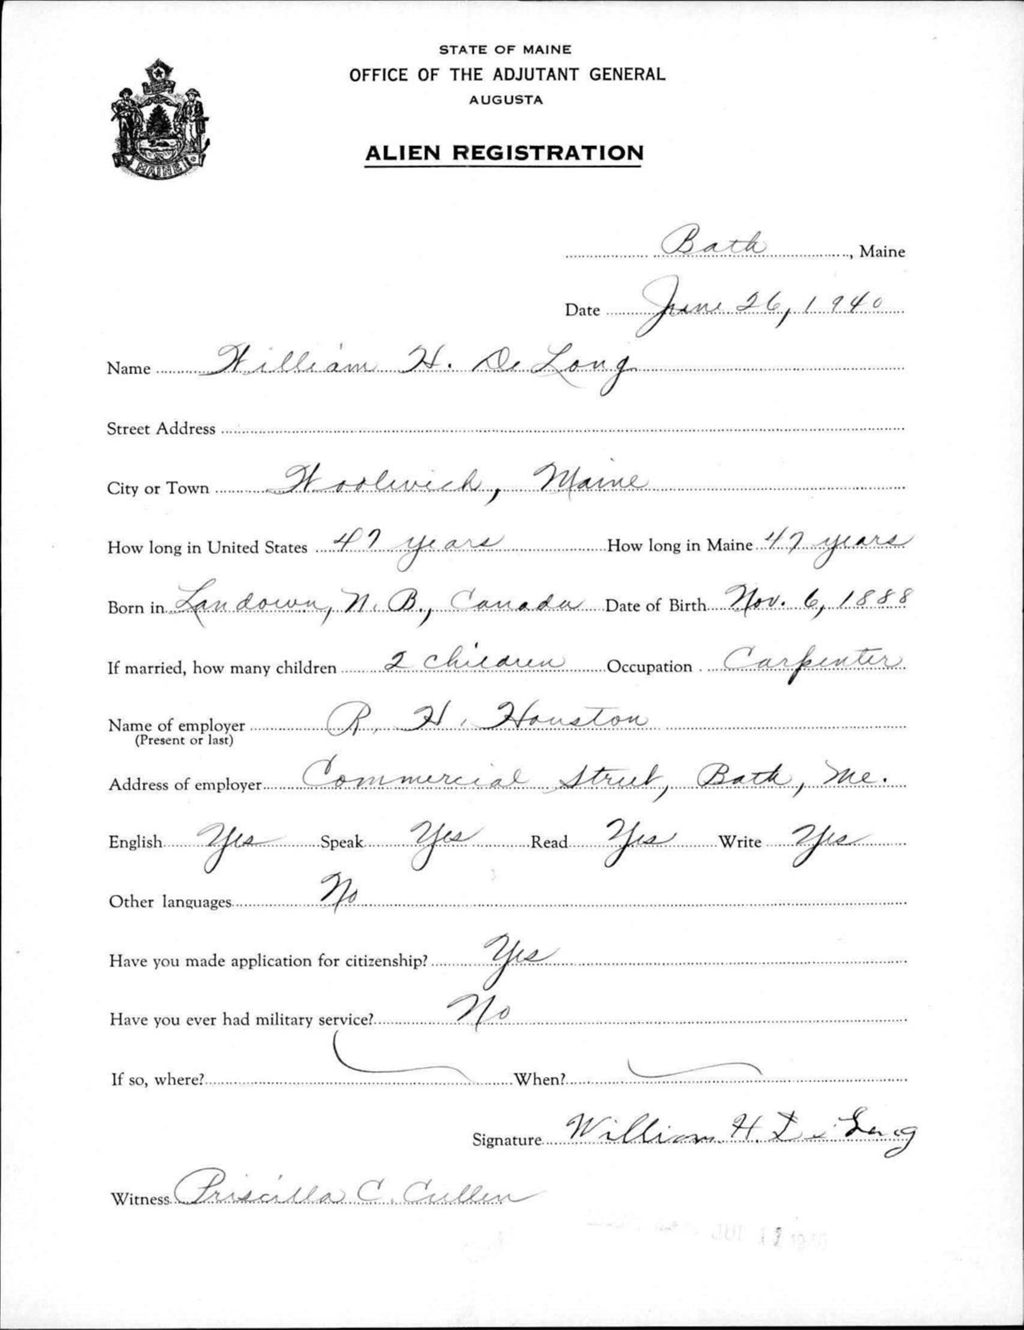 STATE OF MAINE
OFFICE OF THE ADJUTANT GENERAL
AUGUSTA
ALIEN REGISTRATION
MAINE
Bath, Maine
Date June 26, 1940
Name William H. De Long
Street Address
City or Town Woolwich, Maine
How long in United States 47 years How long in Maine 47 years
Born in Landown, N. B., Canada Date of Birth Nov. 6, 1888
If married, how many children 2 children Occupation Carpenter
Name of employer R. H. Houston
(Present or last)
Address of employer Commercial Street, Bath, Me.
English Yes Speak Yes Read Yes Write Yes
Other languages No
Have you made application for citizenship? Yes
Have you ever had military service? No
If so, where? When?
Signature William H. De Long
Witness Priscilla C. Cullen